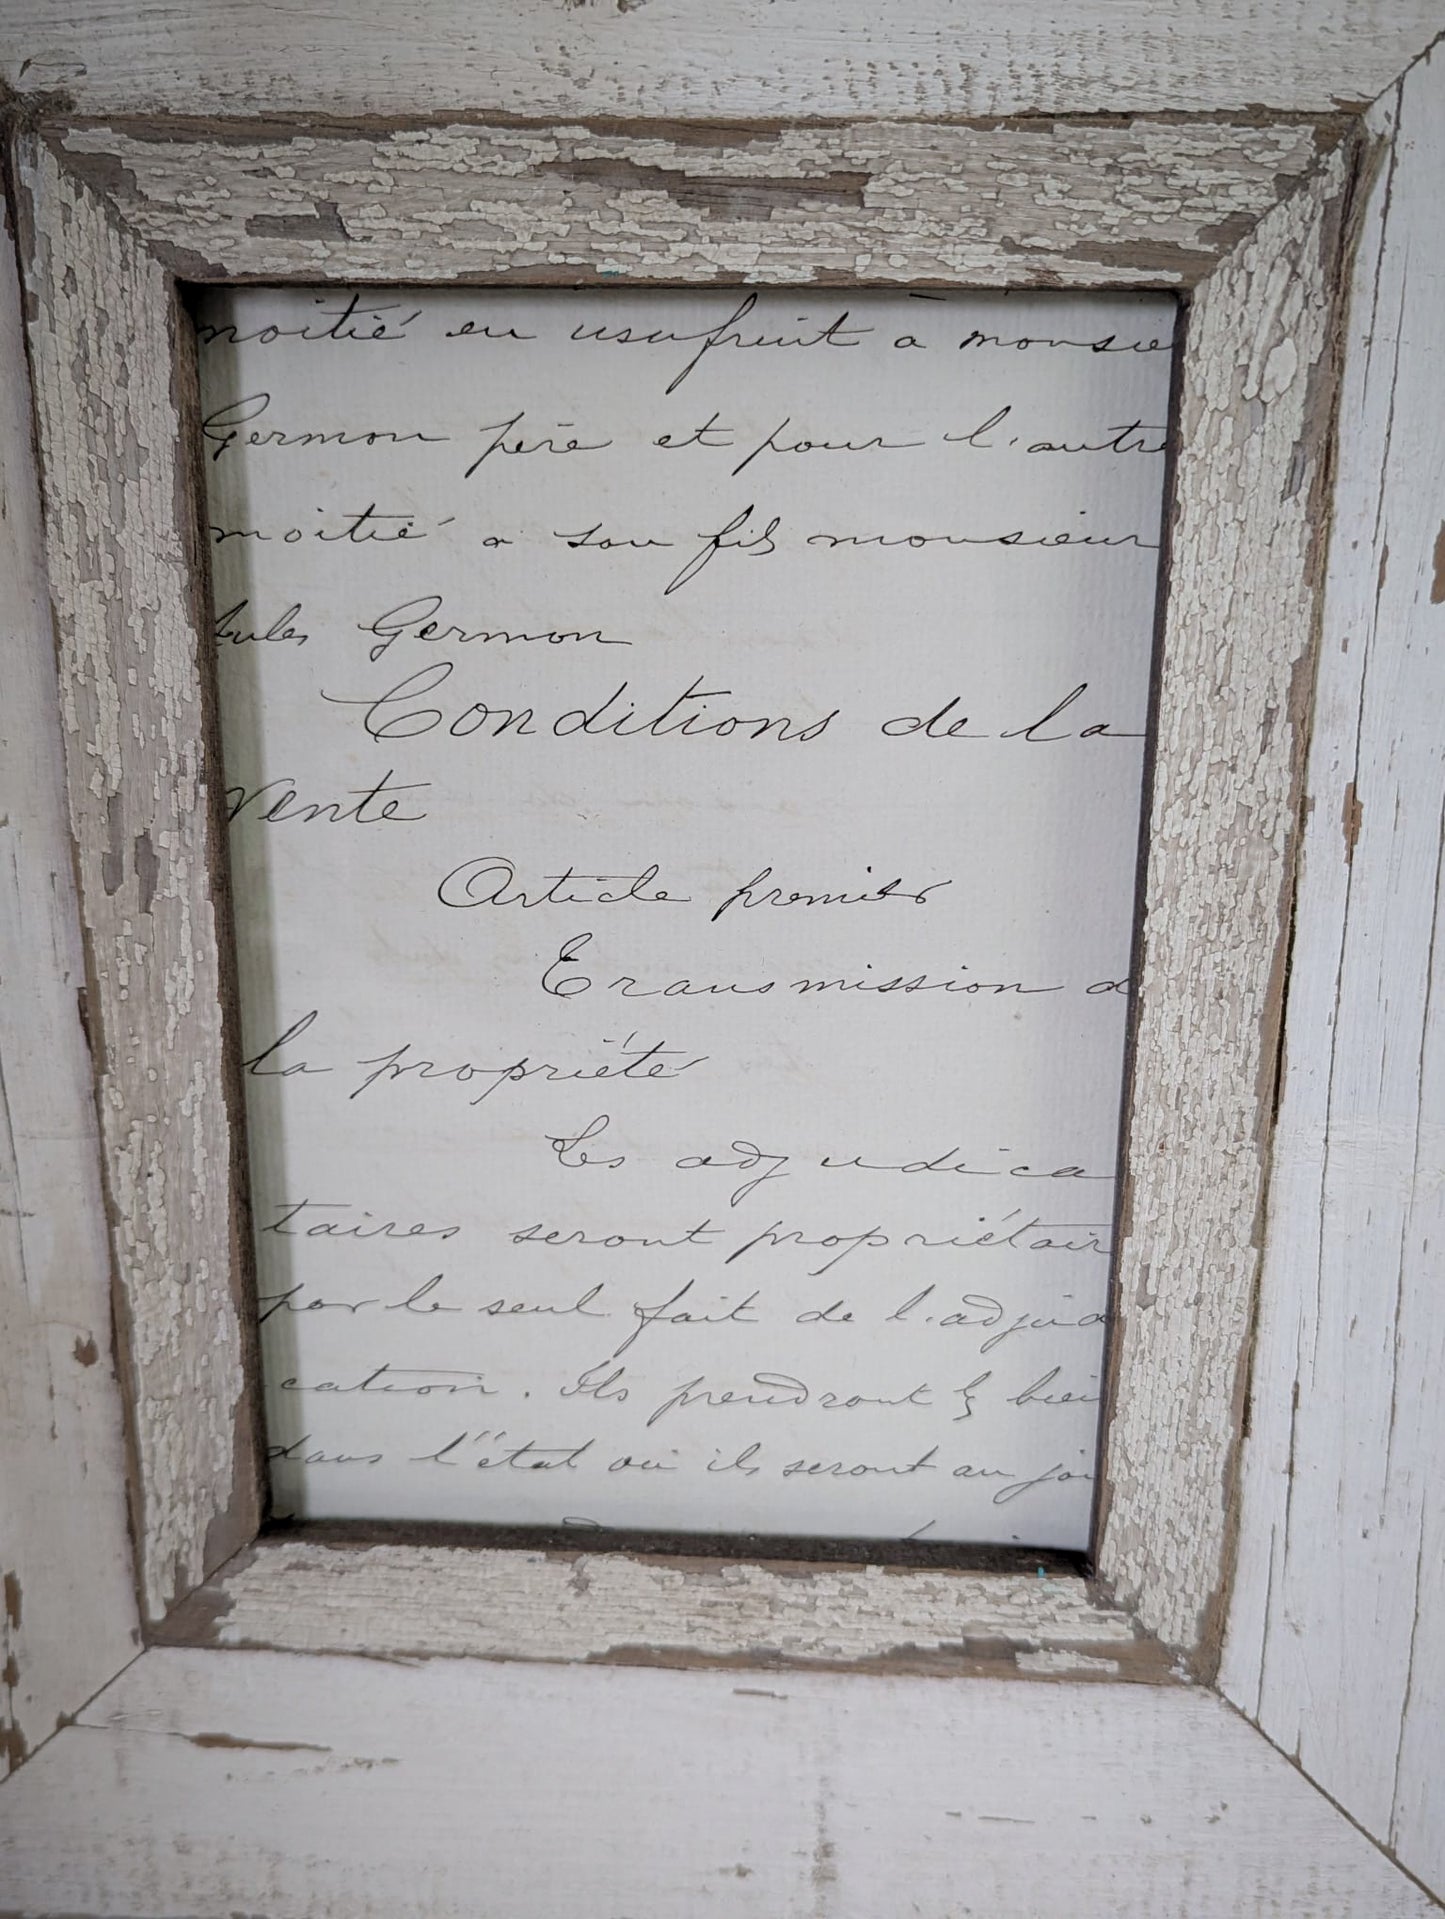 moitié en usufruit à monsie
Germon père et pour l'autre
moitié a son fils monsieur
Jules Germon
Conditions de la
Vente
Article premier
Transmission d
la propriété
Les adjudica
taires seront propriétair
par le seul fait de l'adjud
cation. Ils prendront les bien
dans l'état où ils seront au jou